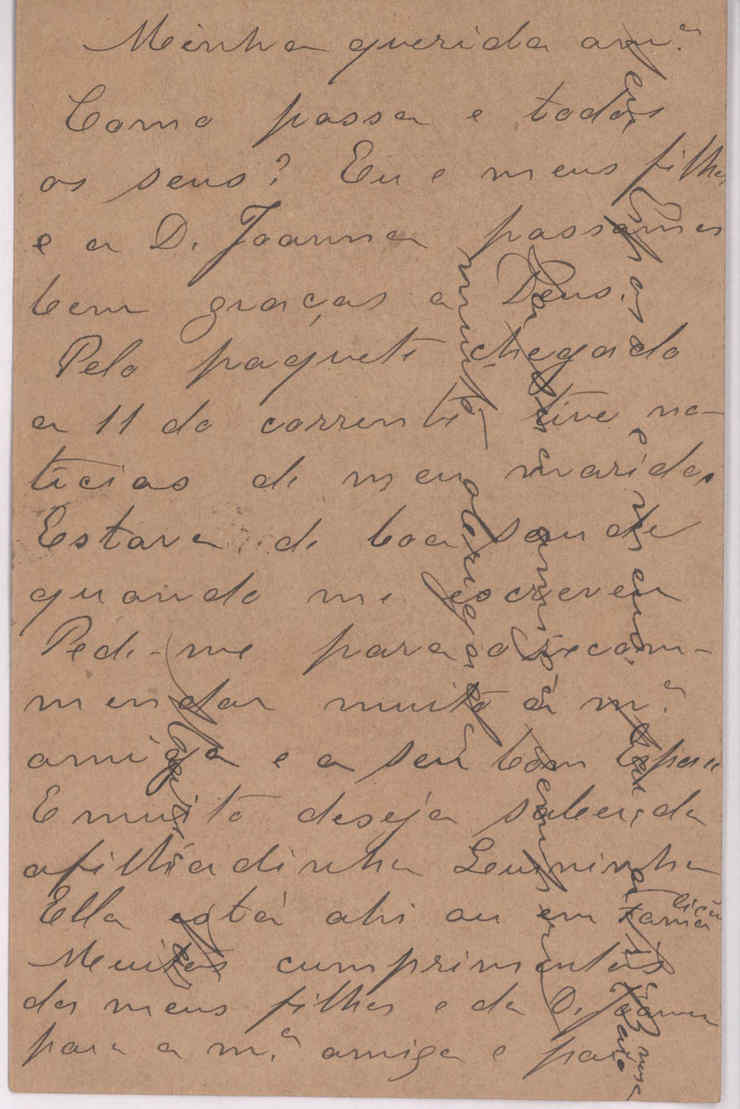 Minha querida am.ª
Como passa e todos
os seus? Eu e meus filhos
e a D. Joanna passamos
bem graças a Deus.
Pelo paquete chegado
a 11 do corrente tive no-
ticias de meu marido.
Estava de boa saude
quando me escreveu
Pede-me para o recom-
mendar muito á m.ª
amiga e a seu bom Esposo
E muito deseja saber da
afilhadinha
Ella está ahi ou em
Muitos cumprimentos
dos meus filhos e da D. Joanna
para a m.ª amiga e para
seu Esposo e meus
sua amiga
muito obrigada
Maria